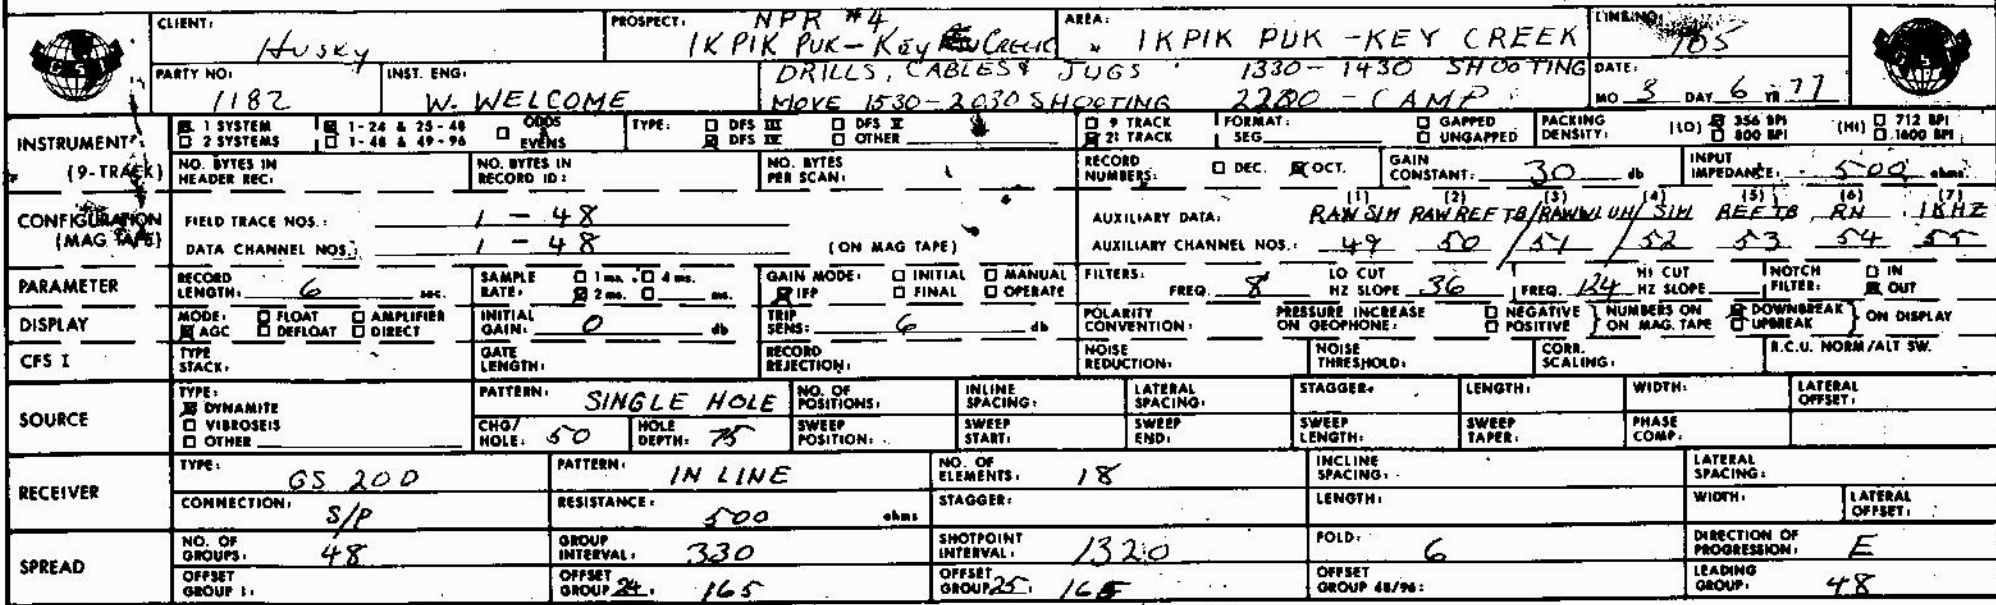 CLIENT: Husky PROSPECT: NPR #4 IKPIK PUK - KEY CREEK AREA: IKPIK PUK - KEY CREEK LINE NO: 105
PARTY NO: 1182 INST. ENG: W. WELCOME DRILLS, CABLES & JUGS 1330 - 1430 SHOOTING DATE:
MOVE 1530 - 2030 SHOOTING 2200 - CAMP MO 3 DAY 6 YR 77
INSTRUMENT 1 SYSTEM 1-24 & 25-48 ODDS TYPE: DFS III DFS V 9 TRACK FORMAT: GAPPED PACKING (LO) 356 BPI (HI) 712 BPI
2 SYSTEMS 1-48 & 49-96 EVENS DFS IV OTHER 21 TRACK SEG UNGAPPED DENSITY: 800 BPI 1600 BPI
(9-TRACK) NO. BYTES IN HEADER REC: NO. BYTES IN RECORD ID: NO. BYTES PER SCAN: RECORD NUMBERS: DEC. OCT. GAIN CONSTANT: 30 db INPUT IMPEDANCE: 500 ohms
(1) (2) (3) (4) (5) (6) (7)
CONFIGURATION FIELD TRACE NOS.: 1 - 48 AUXILIARY DATA: RAW SIM RAW REF TB/RAW UH/ SIM REF TB RN 1KHZ
(MAG TAPE) DATA CHANNEL NOS.: 1 - 48 (ON MAG TAPE) AUXILIARY CHANNEL NOS.: 49 50 /51 /52 53 54 55
PARAMETER RECORD LENGTH: 6 sec. SAMPLE RATE: 1 ms. 4 ms. 2 ms. ms. GAIN MODE: INITIAL MANUAL IFP FINAL OPERATE FILTERS: FREQ. 8 LO CUT HZ SLOPE 36 FREQ. 124 HI CUT HZ SLOPE NOTCH FILTER: IN OUT
DISPLAY MODE: FLOAT AMPLIFIER AGC DEFLOAT DIRECT INITIAL GAIN: 0 db TRIP SENS: 6 db POLARITY CONVENTION: PRESSURE INCREASE ON GEOPHONE: NEGATIVE POSITIVE } NUMBERS ON ON MAG. TAPE DOWNBREAK UPBREAK } ON DISPLAY
CFS I TYPE STACK: GATE LENGTH: RECORD REJECTION: NOISE REDUCTION: NOISE THRESHOLD: CORR. SCALING: R.C.U. NORM/ALT SW.
SOURCE TYPE: DYNAMITE VIBROSEIS OTHER PATTERN: SINGLE HOLE NO. OF POSITIONS: INLINE SPACING: LATERAL SPACING: STAGGER: LENGTH: WIDTH: LATERAL OFFSET:
CHG/ HOLE: 50 HOLE DEPTH: 75 SWEEP POSITION: SWEEP START: SWEEP END: SWEEP LENGTH: SWEEP TAPER: PHASE COMP:
RECEIVER TYPE: GS 20D PATTERN: IN LINE NO. OF ELEMENTS: 18 INCLINE SPACING: LATERAL SPACING:
CONNECTION: S/P RESISTANCE: 500 ohms STAGGER: LENGTH: WIDTH: LATERAL OFFSET:
SPREAD NO. OF GROUPS: 48 GROUP INTERVAL: 330 SHOTPOINT INTERVAL: 1320 FOLD: 6 DIRECTION OF PROGRESSION: E
OFFSET GROUP 1: OFFSET GROUP 24: 165 OFFSET GROUP 25: 165 OFFSET GROUP 48/96: LEADING GROUP: 48